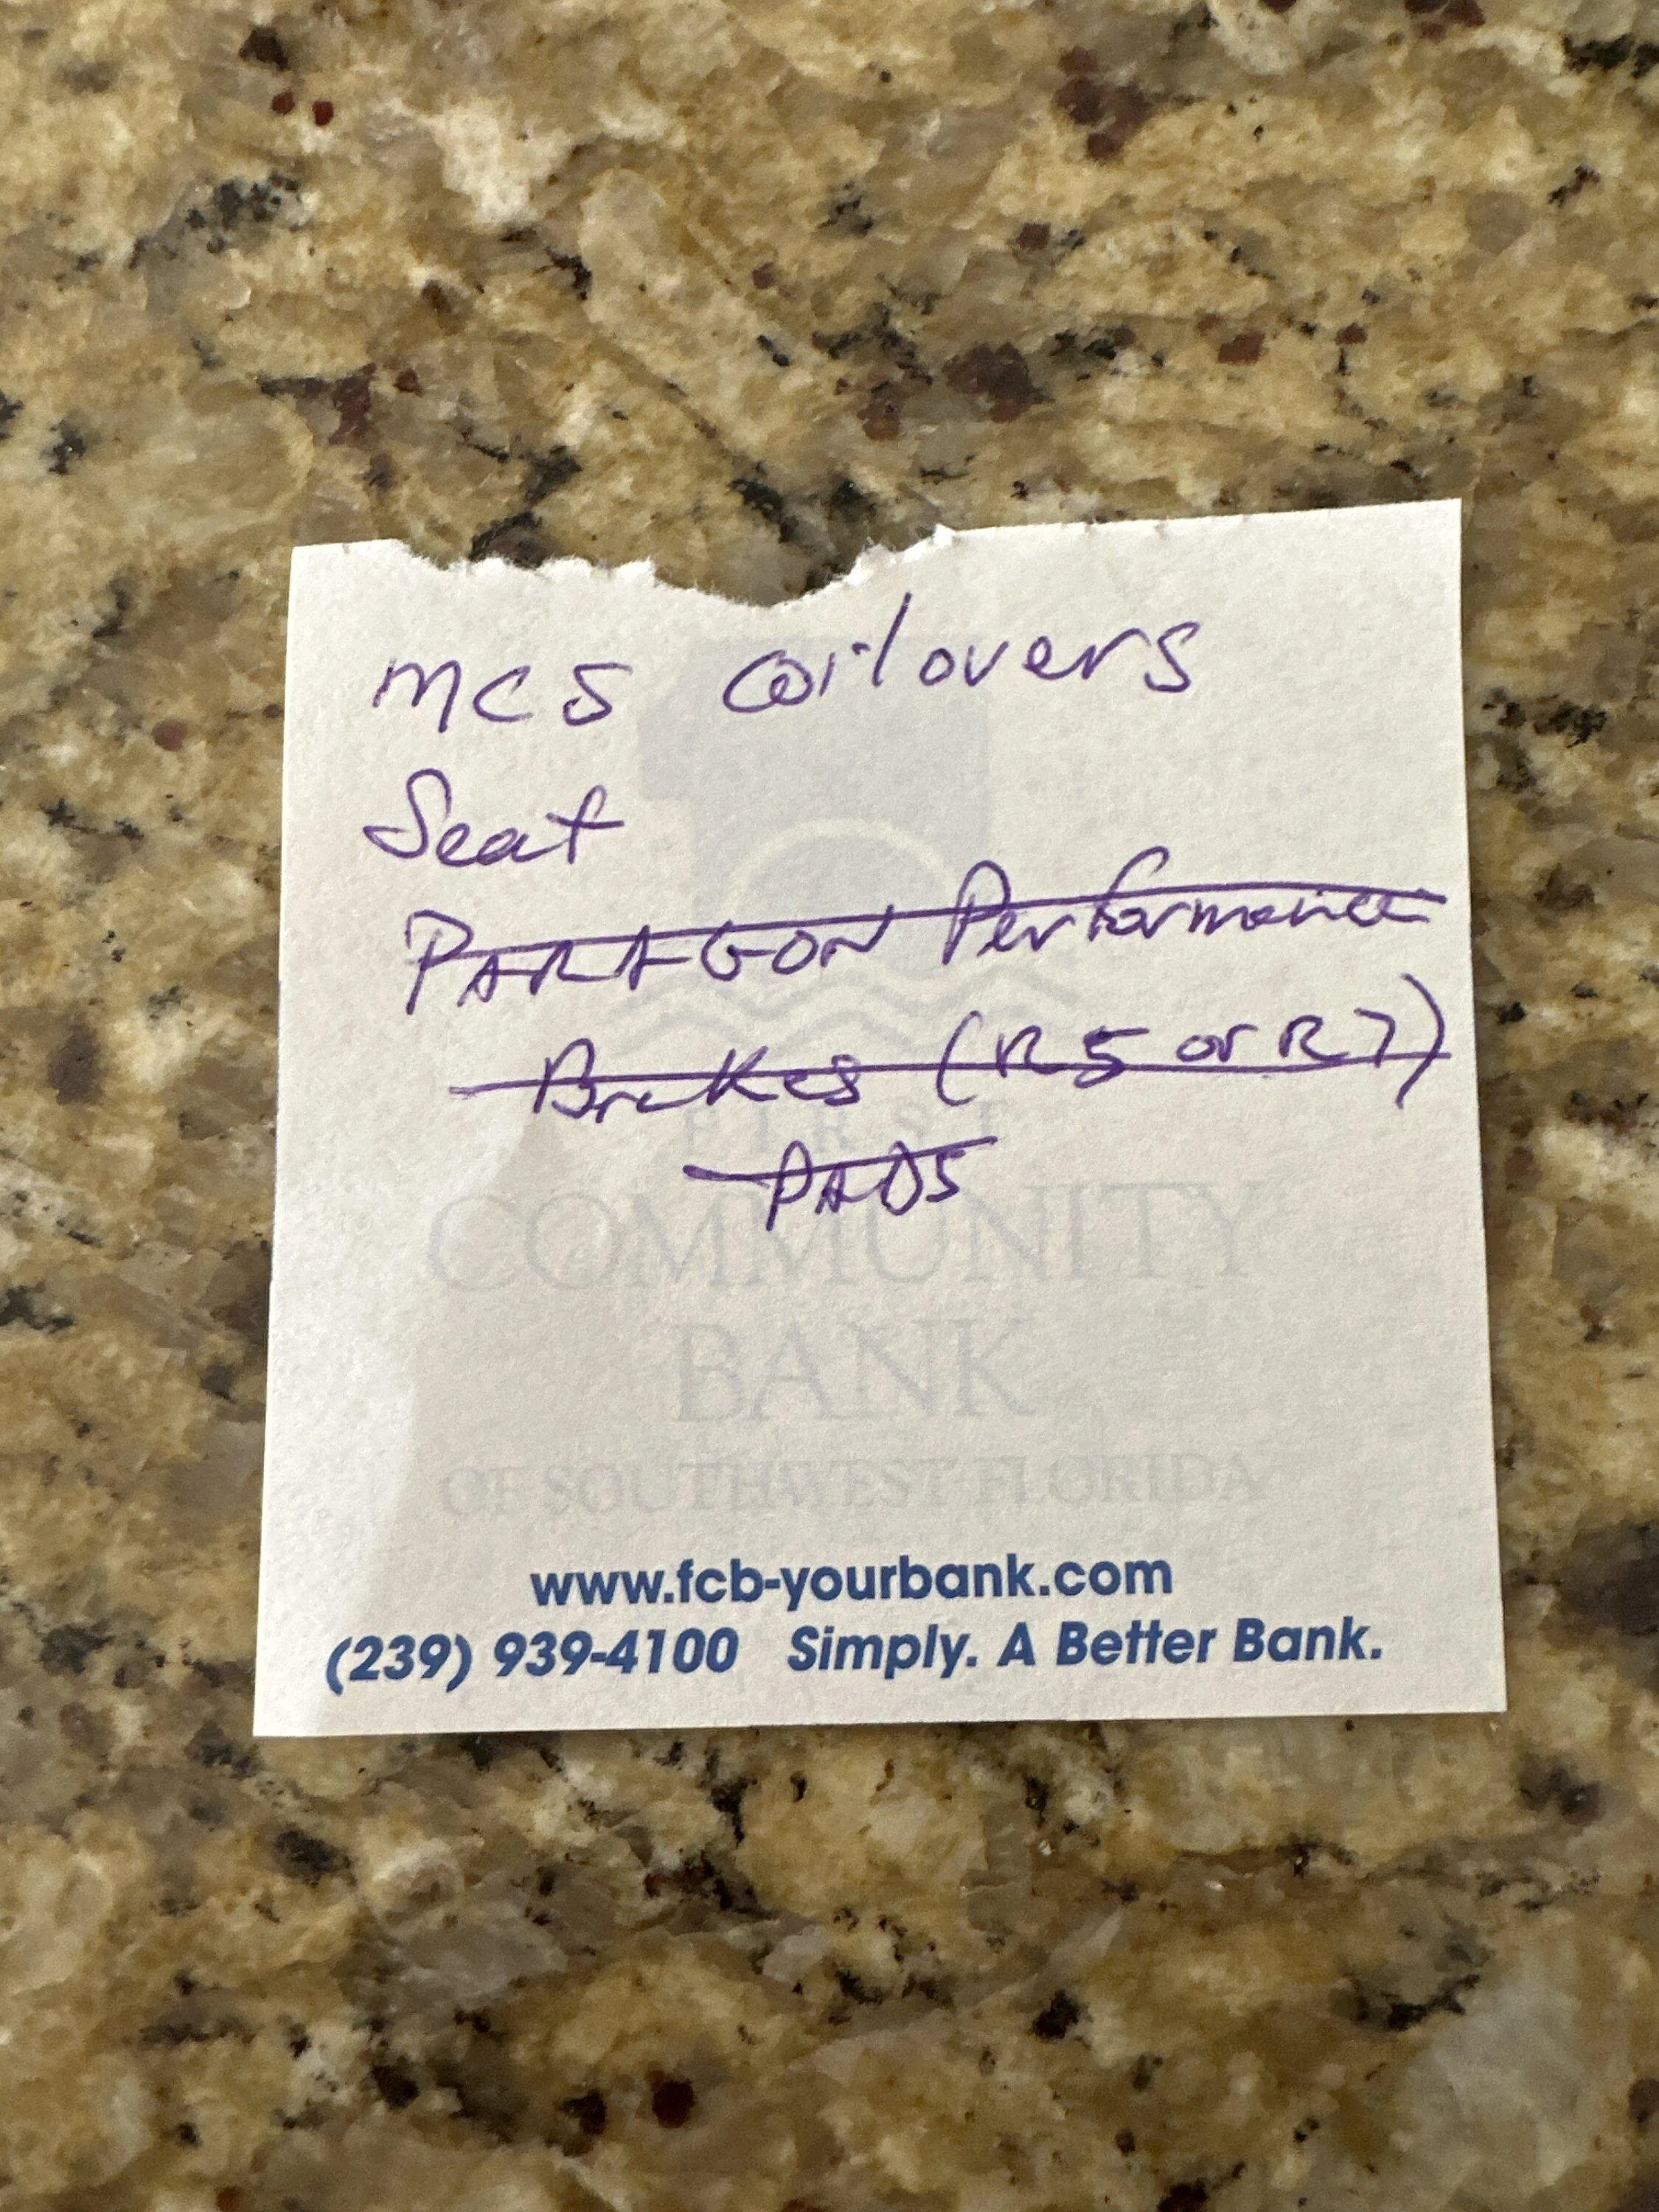 MCS coilovers
Seat
PARAGON Performance
Brakes (R5 or R7)
PADS
FIRST
COMMUNITY
BANK
OF SOUTHWEST FLORIDA
www.fcb-yourbank.com
(239) 939-4100 Simply. A Better Bank.